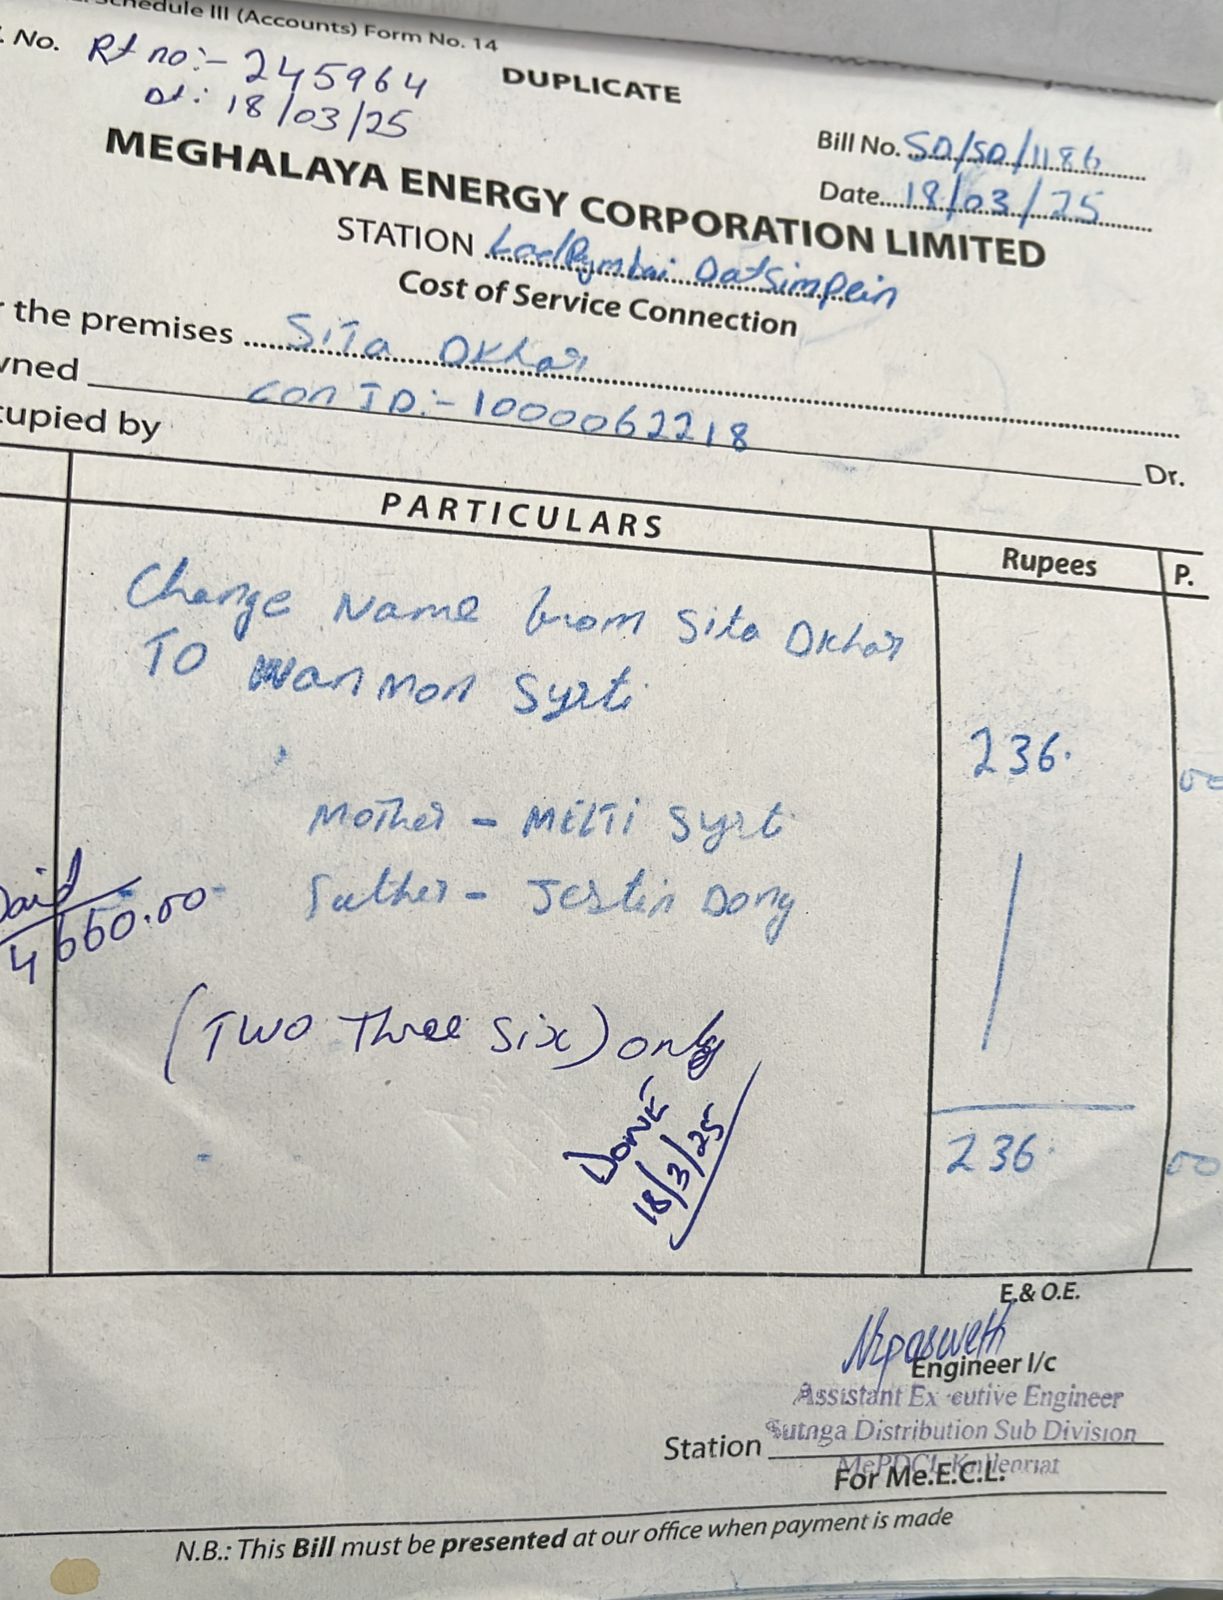 Schedule III (Accounts) Form No. 14
. No. Rt no:- 245964
Dt: 18/03/25
DUPLICATE
Bill No. SD/SD/1186
Date 18/03/25
MEGHALAYA ENERGY CORPORATION LIMITED
STATION LadRymbai Datsimpein
Cost of Service Connection
r the premises Sita Okhar
wned
Con ID:- 1000062218
cupied by Dr.
PARTICULARS Rupees P.
Change Name from Sita Okhar
TO Wanmon Syrti
236. 00
Mother - Melti Syrti
Father - Jestin Dong
Paid
4660.00
(Two Three Six) only
DONE
18/3/25
236. 00
E.& O.E.
Engineer I/c
Assistant Executive Engineer
Sutnga Distribution Sub Division
Station
MePDCL
For Me.E.C.L.
N.B.: This Bill must be presented at our office when payment is made